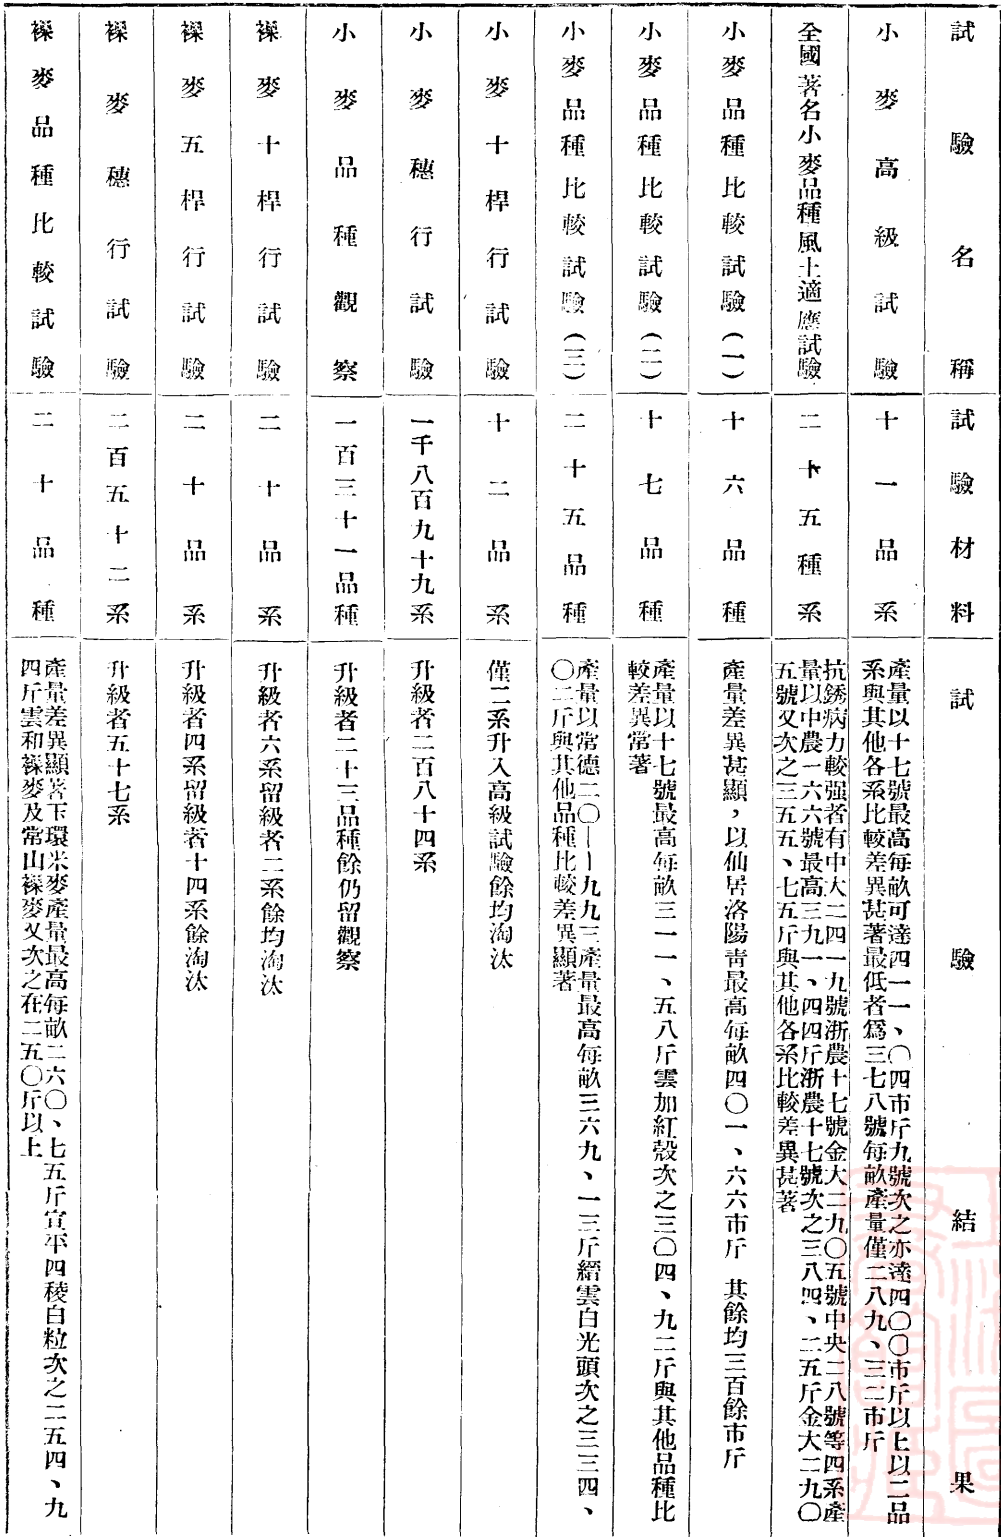 試驗名稱　試驗材料　試驗結果
小麥高級試驗　十一品系　產量以十七號最高每畝可達四一一、〇四市斤九號次之亦達四〇〇市斤以上以二品
系與其他各系比較差異甚著最低者爲三七八號每畝產量僅二八九、三二市斤
全國著名小麥品種風土適應試驗　二十五種系　抗銹病力較强者有中大二四一九號浙農十七號金大二九〇五號中央二八號等四系產
量以中農一六六號最高三九一、四四斤浙農十七號次之三八四、二五斤金大二九〇
五號又次之三五五、七五斤與其他各系比較差異甚著
小麥品種比較試驗(一)　十六品種　產量差異甚顯，以仙居洛陽靑最高每畝四〇一、六六市斤 其餘均三百餘市斤
小麥品種比較試驗(二)　十七品種　產量以十七號最高每畝三一一、五八斤雲加紅殼次之三〇四、九二斤與其他品種比
較差異常著
小麥品種比較試驗(三)　二十五品種　產量以常德二〇—一九九三產量最高每畝三六九、一三斤縉雲白光頭次之三三四、
〇二斤與其他品種比較差異顯著
小麥十桿行試驗　十二品系　僅二系升入高級試驗餘均淘汰
小麥穗行試驗　一千八百九十九系　升級者二百八十四系
小麥品種觀察　一百三十一品種　升級者二十三品種餘仍留觀察
裸麥十桿行試驗　二十品系　升級者六系留級者二系餘均淘汰
裸麥五桿行試驗　二十品系　升級者四系留級者十四系餘淘汰
裸麥穗行試驗　二百五十二系　升級者五十七系
裸麥品種比較試驗　二十品種　產量差異顯著玉環米麥產量最高每畝二六〇、七五斤宣平四稜白粒次之二五四、九
四斤雲和裸麥及常山裸麥又次之在二五〇斤以上